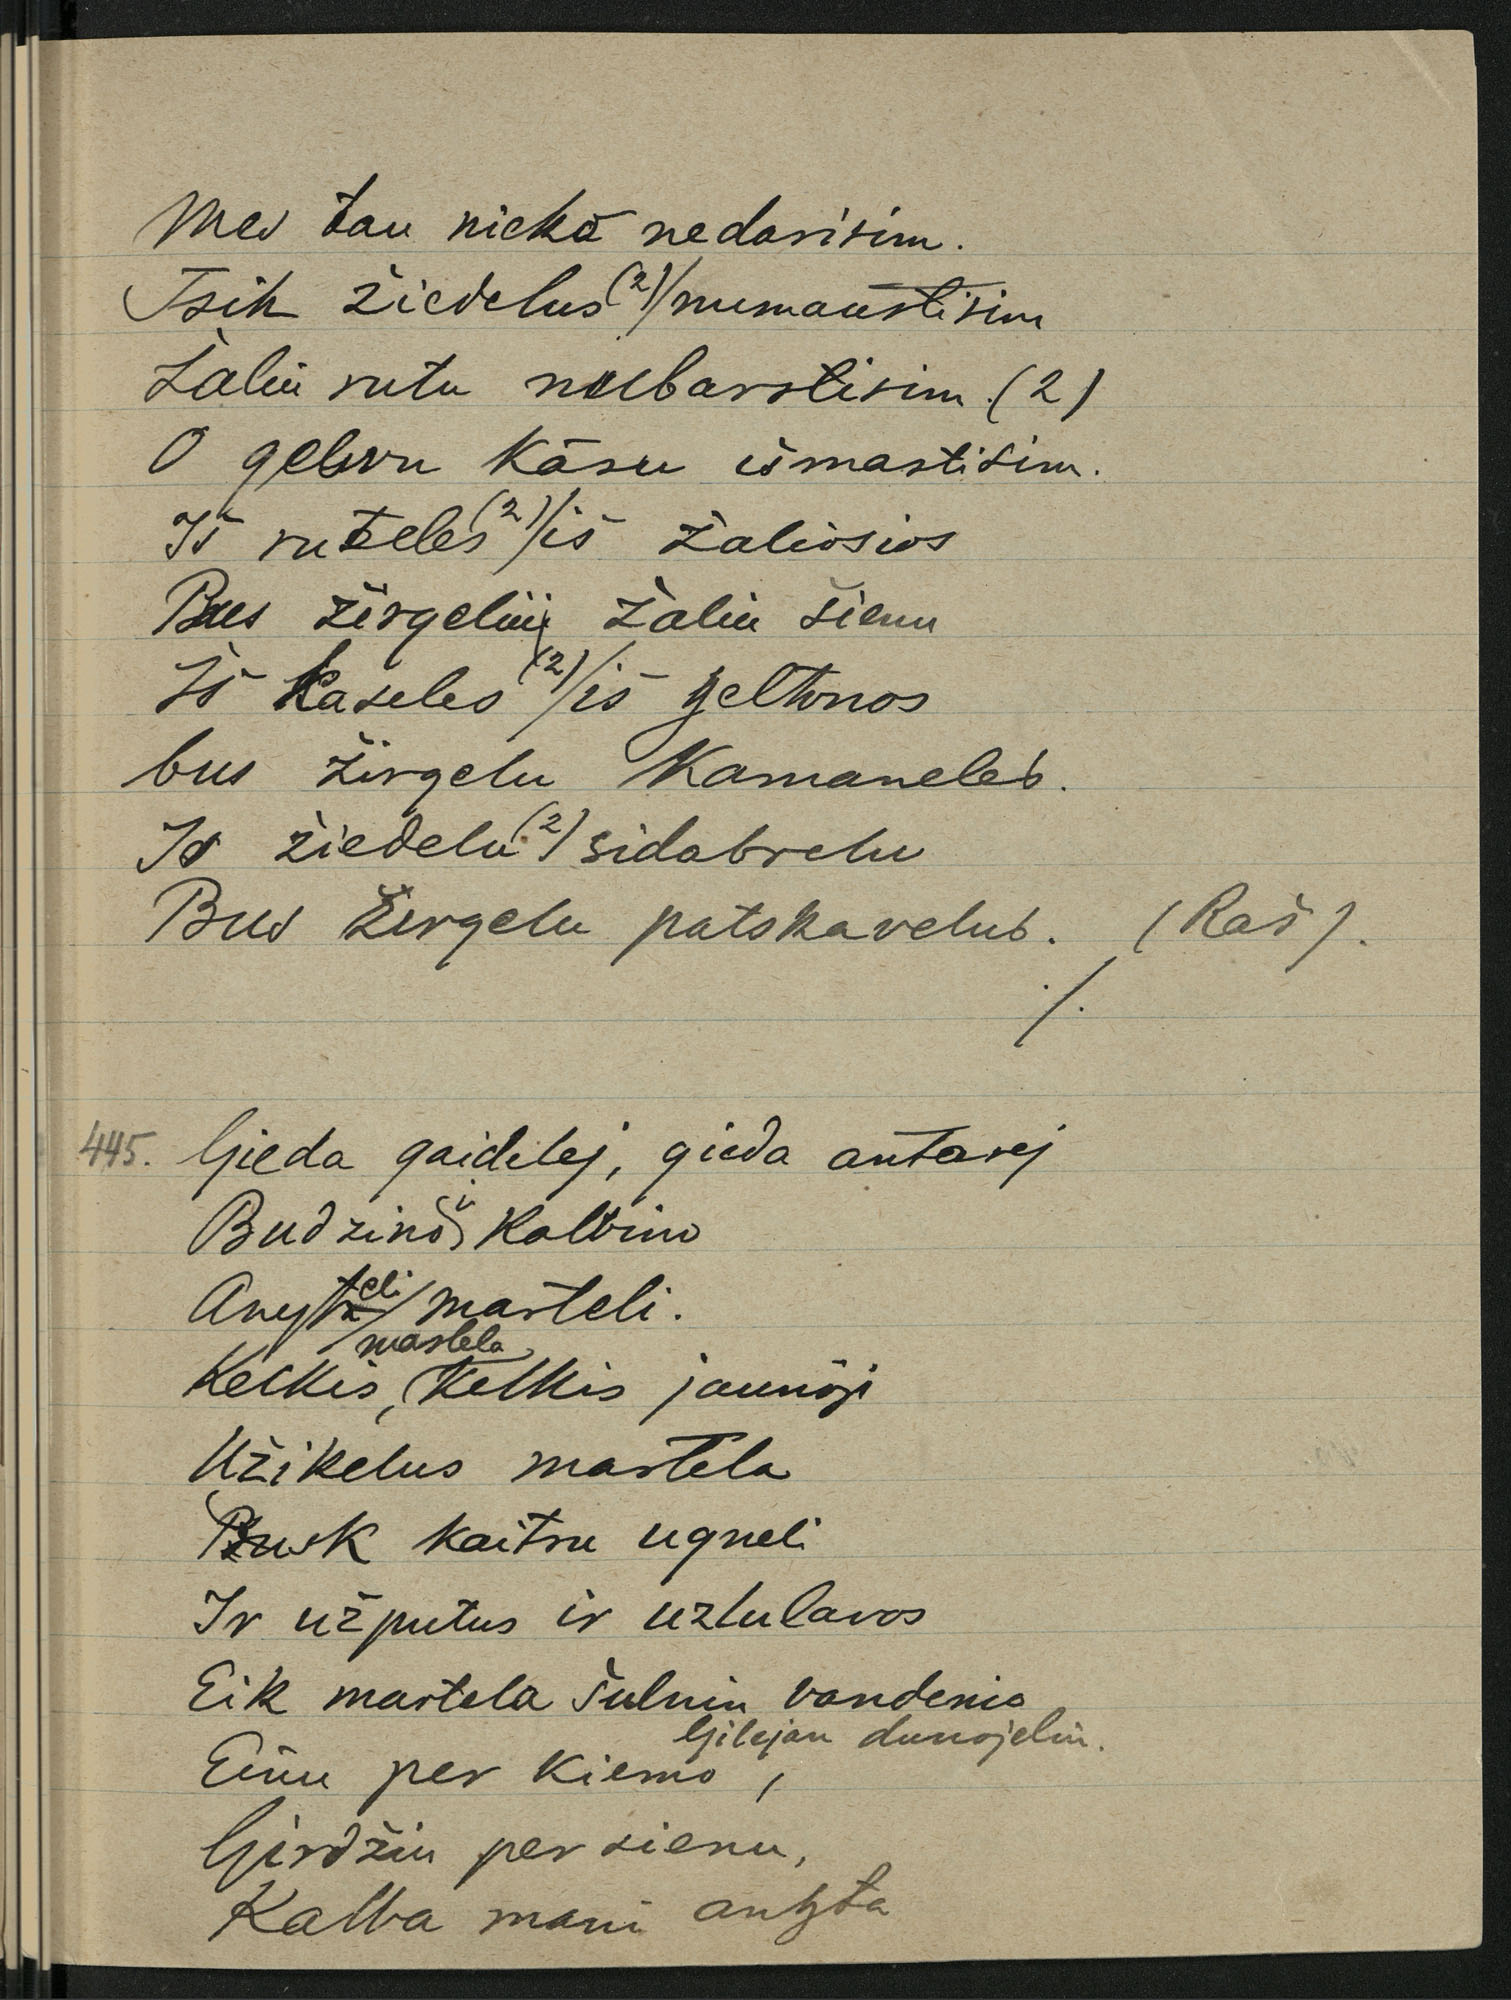 Mes tau nieko nedarisim.
Tsik žiedelus (2)/ numaustisim
Žaliu rutu nubarstisim (2)
O gelsvu kasu išmastisim.
Iš ruteles (2)/ iš žaliosios
Bus žirgeliui žaliu šienu
Iš kaseles (2)/ iš geltonos
bus žirgelu kamaneles.
Iš žiedelu (2) sidabrelu
Bus žirgelu patskavelus. (Raš).
./.
445. Gieda gaidelej, gieda antarej
Budzino kalbino
Anyteli/ marteli.
Kelkis, martela kelkis jaunoji
Užikelus martela
Pusk kaitru ugneli
Ir užputus ir
Eik martela šulniu vandenio
Gilejan dunojeliu.
Einu per kiemo,
Girdžiu per sienu,
Kalba mani anyta